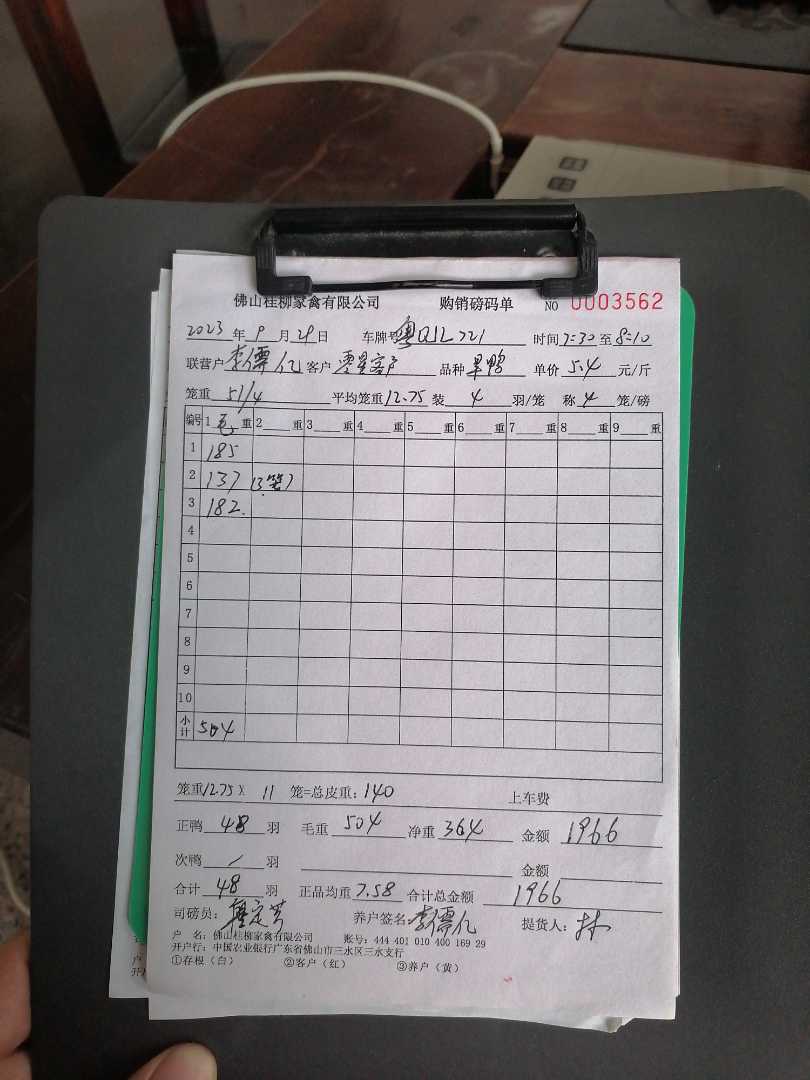 佛山桂柳家禽有限公司 购销磅码单 NO 0003562
2023 年 9 月 29 日 车牌号 粤Q12721 时间 7:30 至 8:10
联营户 李 亿 客户 零星客户 品种 单价 5.4 元/斤
笼重 51/4 平均笼重 12.75 装 4 羽/笼 称 4 笼/磅
编号 1 毛 重 2 重 3 重 4 重 5 重 6 重 7 重 8 重 9 重
1 185
2 137 (3笼)
3 182.
4
5
6
7
8
9
10
小计 504
笼重 12.75 X 11 笼=总皮重: 140 上车费
正鸭 48 羽 毛重 504 净重 364 金额 1966
次鸭 / 羽 金额
合计 48 羽 正品均重 7.58 合计总金额 1966
司磅员: 养户签名: 李 亿 提货人: 林
户 名: 佛山桂柳家禽有限公司 账号: 444 401 010 400 169 29
开户行: 中国农业银行广东省佛山市三水区三水支行
①存根(白) ②客户(红) ③养户(黄)